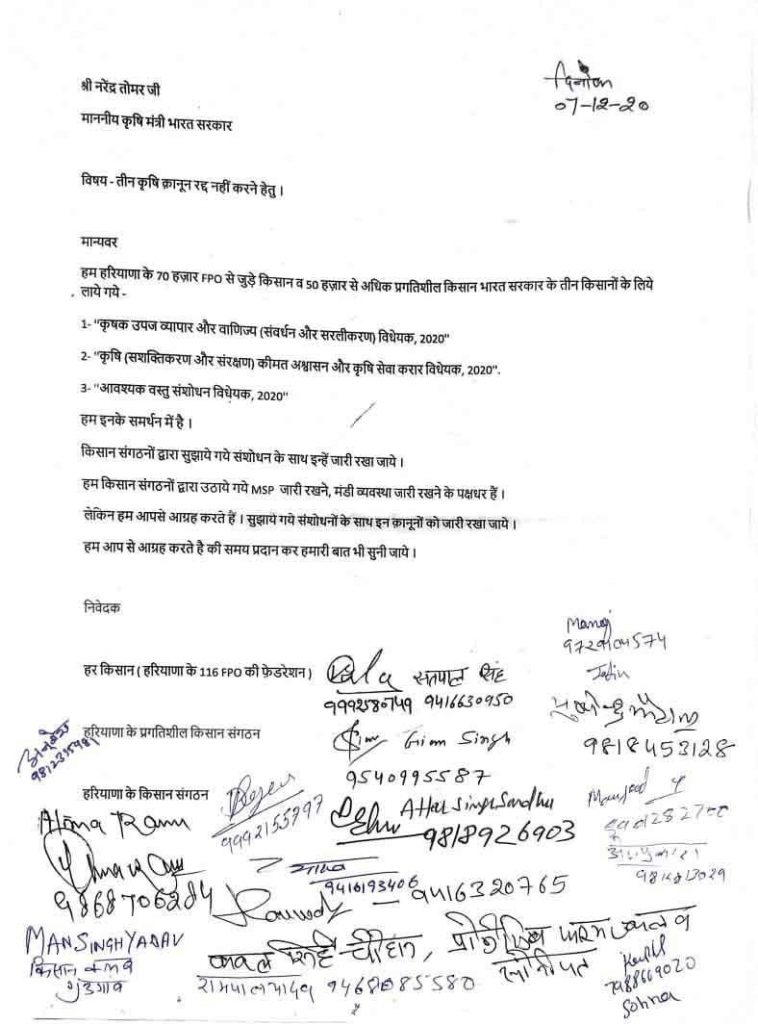 दिनांक
07-12-20
श्री नरेंद्र तोमर जी
माननीय कृषि मंत्री भारत सरकार
विषय - तीन कृषि क़ानून रद्द नहीं करने हेतु ।
मान्यवर
हम हरियाणा के 70 हज़ार FPO से जुड़े किसान व 50 हज़ार से अधिक प्रगतिशील किसान भारत सरकार के तीन किसानों के लिये
लाये गये -
1- "कृषक उपज व्यापार और वाणिज्य (संवर्धन और सरलीकरण) विधेयक, 2020"
2- "कृषि (सशक्तिकरण और संरक्षण) कीमत अश्वासन और कृषि सेवा करार विधेयक, 2020".
3- "आवश्यक वस्तु संशोधन विधेयक, 2020"
हम इनके समर्थन में है ।
किसान संगठनों द्वारा सुझाये गये संशोधन के साथ इन्हें जारी रखा जाये ।
हम किसान संगठनों द्वारा उठाये गये MSP जारी रखने, मंडी व्यवस्था जारी रखने के पक्षधर हैं ।
लेकिन हम आपसे आग्रह करते हैं । सुझाये गये संशोधनों के साथ इन क़ानूनों को जारी रखा जाये ।
हम आप से आग्रह करते है की समय प्रदान कर हमारी बात भी सुनी जाये ।
निवेदक
Manoj
हर किसान ( हरियाणा के 116 FPO की फ़ेडरेशन )
सतपाल सिंह
9992580749 9416630950
हरियाणा के प्रगतिशील किसान संगठन
Singh
9818453128
9540995587
हरियाणा के किसान संगठन
Attar Singh Sandhu
9818926903
Atma Ram
9992155797
9416193406
9868706284
9416320765
MAN SINGH YADAV
किसान क्लब
गुड़गांव
कवल सिंह चौहान,
सोनीपत
रामपाल यादव 9468085580
7988669020
Sohna